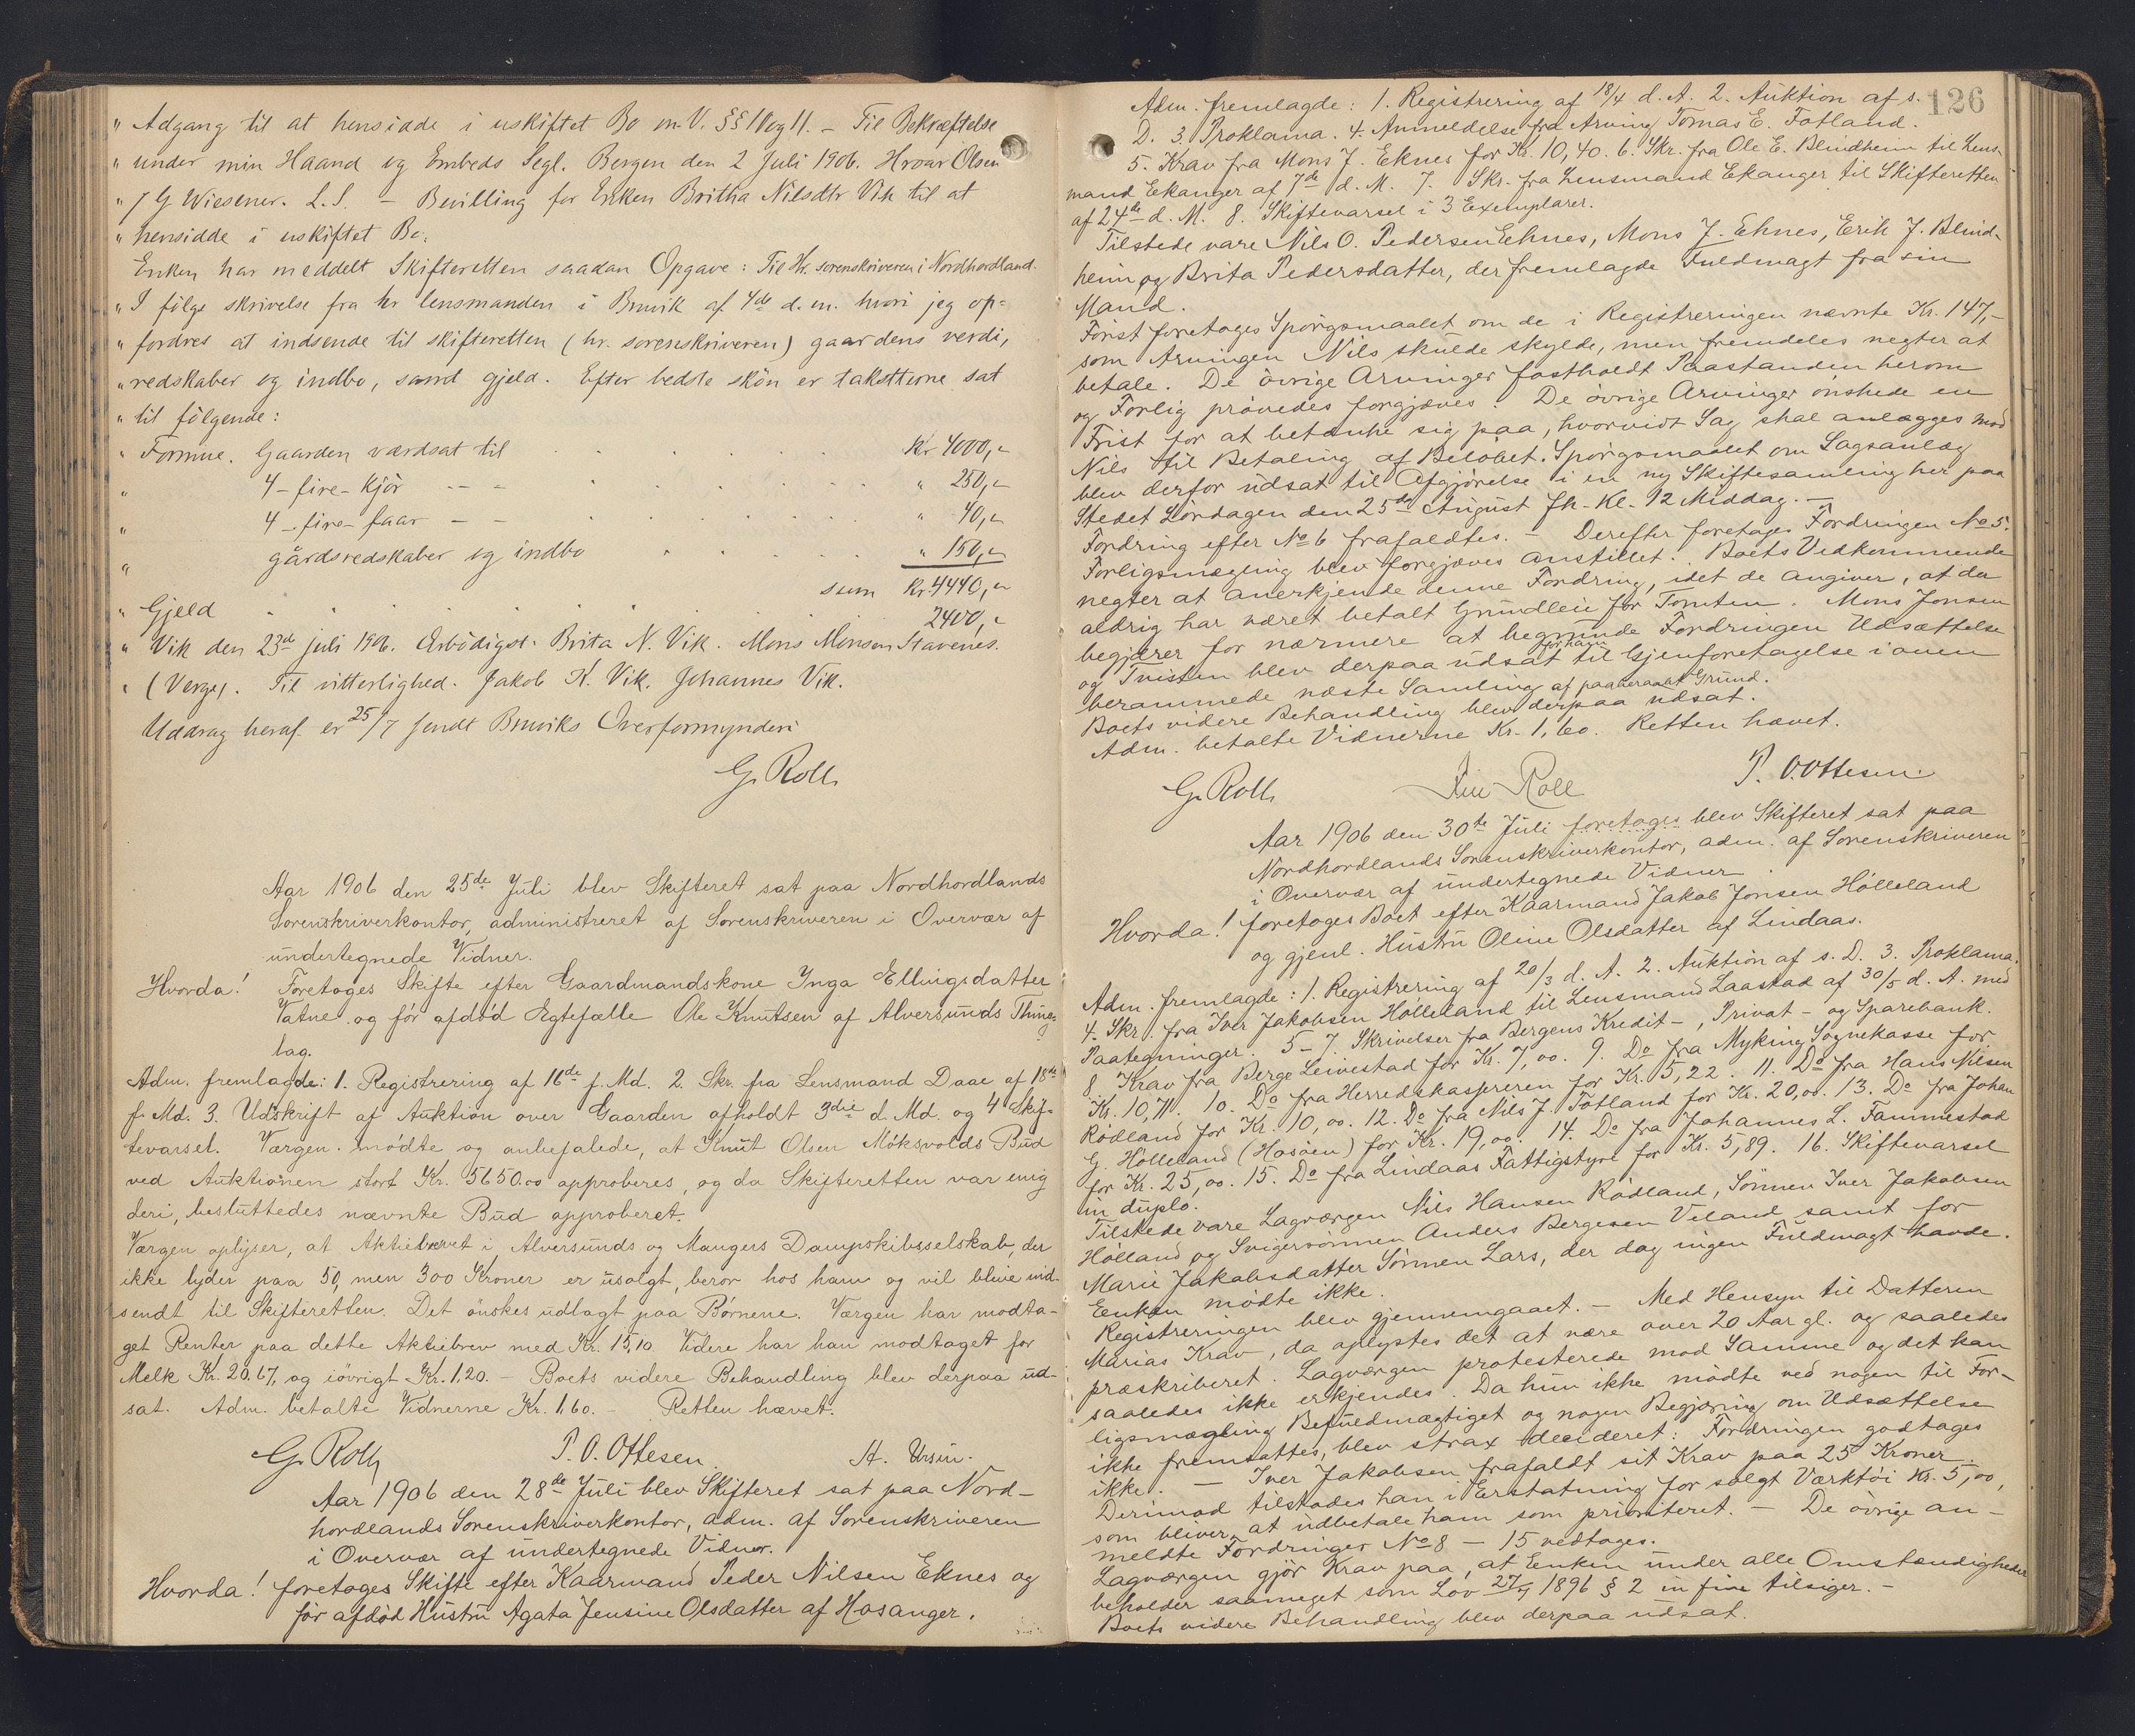 " Adgang til at hensidde i uskiftet Bo m. V. §§ 10 og 11. – Til Bekræftelse
" under min Haand og Embeds Segl. Bergen den 2 Juli 1906. Hroar Olsen
" / G Wiesener. L. S. – Bevilling for Enken Britha Nilsdtr Vik til at
" hensidde i uskiftet Bo.
Enken har meddelt Skifteretten saadan Opgave: Til Hr. sorenskriveren i Nordhordland.
" I følge skrivelse fra hr lensmanden i Bruvik af 4de d. m. hvori jeg op=
" fordres at indsende til skifteretten (hr. sorenskriveren) gaardens verdi,
" redskaber og indbo, samt gjeld. Efter bedste skjøn er taksterne sat
" til følgende:
" Formue. Gaarden værdsat til Kr 4000,-
" 4-fire-kjør - - - " 250,-
" 4-fire-faar - - " 40,-
" gårdsredskaber og indbo " 150,-
sum Kr. 4440,-
" Gjeld 2400,-
" Vik den 23de juli 1906. Ærbødigst. Brita N. Vik. Mons Monsen Stavenes.
" (Verge). Til vitterlighed. Jakob K. Vik. Johannes Vik.
Uddrag heraf er 25/7 sendt Bruviks Overformynderi
G. Roll
Aar 1906 den 25de Juli blev Skifteret sat paa Nordhordlands
Sorenskriverkontor, administreret af Sorenskriveren i Overvær af
undertegnede Vidner.
Hvorda! Foretages Skifte efter Gaardmandskone Inga Ellingsdatter
Vatne og før afdød Egtefælle Ole Knutsen af Alversunds Thing-
lag.
Adm. fremlagde: 1. Registrering af 16de f. Md. 2. Skr. fra Lensmand Daae af 18de
f. Md. 3. Udskrift af Auktion over Gaarden afholdt 3die d. Md. og 4 Skif-
tevarsel. Værgen mødte og anbefalede, at Knut Olsen Møksvolds Bud
ved Auktionen stort Kr. 5650.00 approberes, og da Skifteretten var enig
deri, besluttedes nævnte Bud approberet.
Værgen oplyser, at Aktiebrevet i Alversunds og Mangers Dampskibsselskab, der
ikke lyder paa 50, men 300 Kroner er usolgt, beror hos ham og vil blive ind-
sendt til Skifteretten. Det ønskes udlagt paa Børnene. Værgen har modta-
get Renter paa dette Aktiebrev med Kr. 15,10. Videre har han modtaget for
Melk Kr. 20.67, og iøvrigt Kr. 1.20. – Boets videre Behandling blev derpaa ud-
sat. Adm. betalte Vidnerne Kr. 1.60. – Retten hævet.
G. Roll P. O. Ottesen. A. Ursin.
Aar 1906 den 28de Juli blev Skifteret sat paa Nord-
hordlands Sorenskriverkontor, adm. af Sorenskriveren
i Overvær af undertegnede Vidner.
Hvorda! foretages Skifte efter Kaarmand Peder Nilsen Eknes og
før afdød Hustru Agata Jensine Olsdatter af Hosanger.
126
Adm. fremlagde: 1. Registrering af 18/4 d. A. 2. Auktion af s.
D. 3. Proklama. 4. Anmeldelse fra Arving Tomas E. Fotland.
5. Krav fra Mons J. Eknes for Kr. 10,40. 6. Skr. fra Ole E. Blindheim til Lens-
mand Eekanger af 7de d. M. 7. Skr. fra Lensmand Ekanger til Skifteretten
af 24de d. M. 8. Skiftevarsel i 3 Exemplarer.
Tilstede vare Nils O. Pedersen Eknes, Mons J. Eknes, Erik J. Blind-
heim og Brita Pedersdatter, der fremlagde Fuldmagt fra sin
Mand.
Først foretoges Spørgsmaalet om de i Registreringen nævnte Kr. 147,-
som Arvingen Nils skulde skylde, men fremdeles negter at
betale. De øvrige Arvinger fastholdt Paastanden herom
og Forlig prøvedes forgjæves. De øvrige Arvinger ønskede en
Frist for at betænke sig paa, hvorvidt Sag skal anlægges mod
Nils til Betaling af Beløbet. Spørgsmaalet om Sagsanlæg
blev derfor udsat til Afgjørelse i en ny Skiftesamling her paa
Stedet Lørdagen den 25de August fh. Kl. 12 Middag. –
Fordring efter No 6 frafaldtes. – Derefter foretoges Fordringen No 5.
Forligsmægling blev forgjæves anstillet. Boets Vedkommende
negter at anerkjende denne Fordring, idet de angiver, at der
aldrig har været betalt Grundleie for Tomten. Mons Jonsen
begjærer for nærmere at begrunde Fordringen Udsættelse
og Tvisten blev derpaa udsat til Gjenforetagelse i oven
for ham
berammede næste Samling af paaberaabt Grund.
Boets videre Behandling blev derpaa udsat.
Adm. betalte Vidnerne Kr. 1,60. Retten hævet.
G. Roll Roll P. O. Ottesen.
Aar 1906 den 30te Juli foretoges blev Skifteret sat paa
Nordhordlands Sorenskriverkontor, adm. af Sorenskriveren
i Overvær af undertegnede Vidner.
Hvorda! foretoges Boet efter Kaarmand Jakob Jonsen Hølleland
og gjenl. Hustru Oline Olsdatter af Lindaas.
Adm. fremlagde: 1. Registrering af 20/3 d. A. 2. Auktion af s. D. 3. Proklama.
4. Skr. fra Iver Jakobsen Hølleland til Lensmand Laastad af 30/5 d. A. med
Paategninger. 5 – 7. Skrivelser fra Bergens Kredit-, Privat- og Sparebank.
8. Krav fra Berge Leivestad for Kr. 7,00. 9. Do fra Myking Sognekasse for
Kr. 10,71. 10. Do fra Herredskasereren for Kr. 5,22. 11. Do fra Hans Nilsen
Rødland for Kr. 10,00. 12. Do fra Nils J. Totland for Kr. 20,00. 13. Do fra Johan
G. Hølleland (Hosøen) for Kr. 19,00. 14. Do fra Johannes L. Fammestad
for Kr. 25,00. 15. Do fra Lindaas Fattigstyre for Kr. 5,89. 16. Skiftevarsel
in duplo.
Tilstede vare Lagværgen Nils Hansen Rødland, Sønnen Iver Jakobsen
Hølland og Svigersønnen Anders Bergesen Veland samt for
Marie Jakobsdatter Sønnen Lars, der dog ingen Fuldmagt havde.
Eenken mødte ikke.
Registreringen blev gjennemgaaet. – Med Hensyn til Datteren
Marias Krav, da oplystes det at være over 20 Aar gl. og saaledes
præskriberet. Lagværgen protesterede mod Samme og det kan
saaledes ikke erkjendes. Da hun ikke mødte ved nogen til For-
ligsmægling Befuldmægtiget og nogen Begjæring om Udsættelse
ikke fremsattes, blev strax decideret: Fordringen godtages
ikke. – Iver Jakobsen frafaldt sit Krav paa 25 Kroner.
Derimod tilstodes han i Erstatning for solgt Værktøi Kr. 5,00,
som bliver at udbetale ham som prioriteret. – De øvrige an-
meldte Fordringer No 8 – 15 vedtoges.
Lagværgen gjør Krav paa, at Eenken under alle Omstændigheder
beholder saameget som Lov 27/4 1896 § 2 in fine tilsiger. –
Boets videre Behandling blev derpaa udsat.